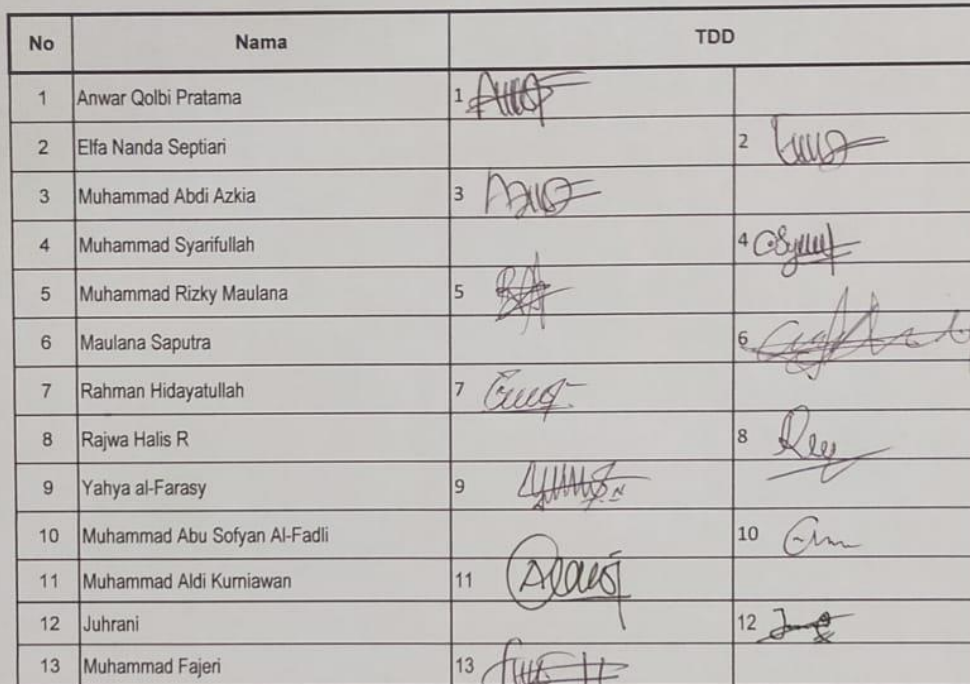 No Nama TDD
1 Anwar Qolbi Pratama 1
2 Elfa Nanda Septiari 2
3 Muhammad Abdi Azkia 3
4 Muhammad Syarifullah 4
5 Muhammad Rizky Maulana 5
6 Maulana Saputra 6
7 Rahman Hidayatullah 7
8 Rajwa Halis R 8
9 Yahya al-Farasy 9
10 Muhammad Abu Sofyan Al-Fadli 10
11 Muhammad Aldi Kurniawan 11
12 Juhrani 12
13 Muhammad Fajeri 13